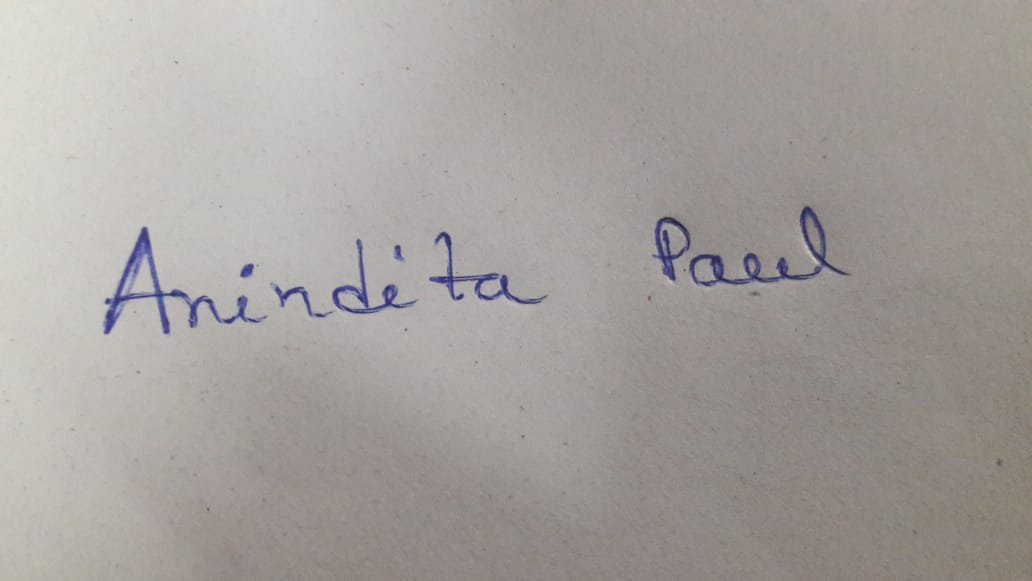 Anindita Paul